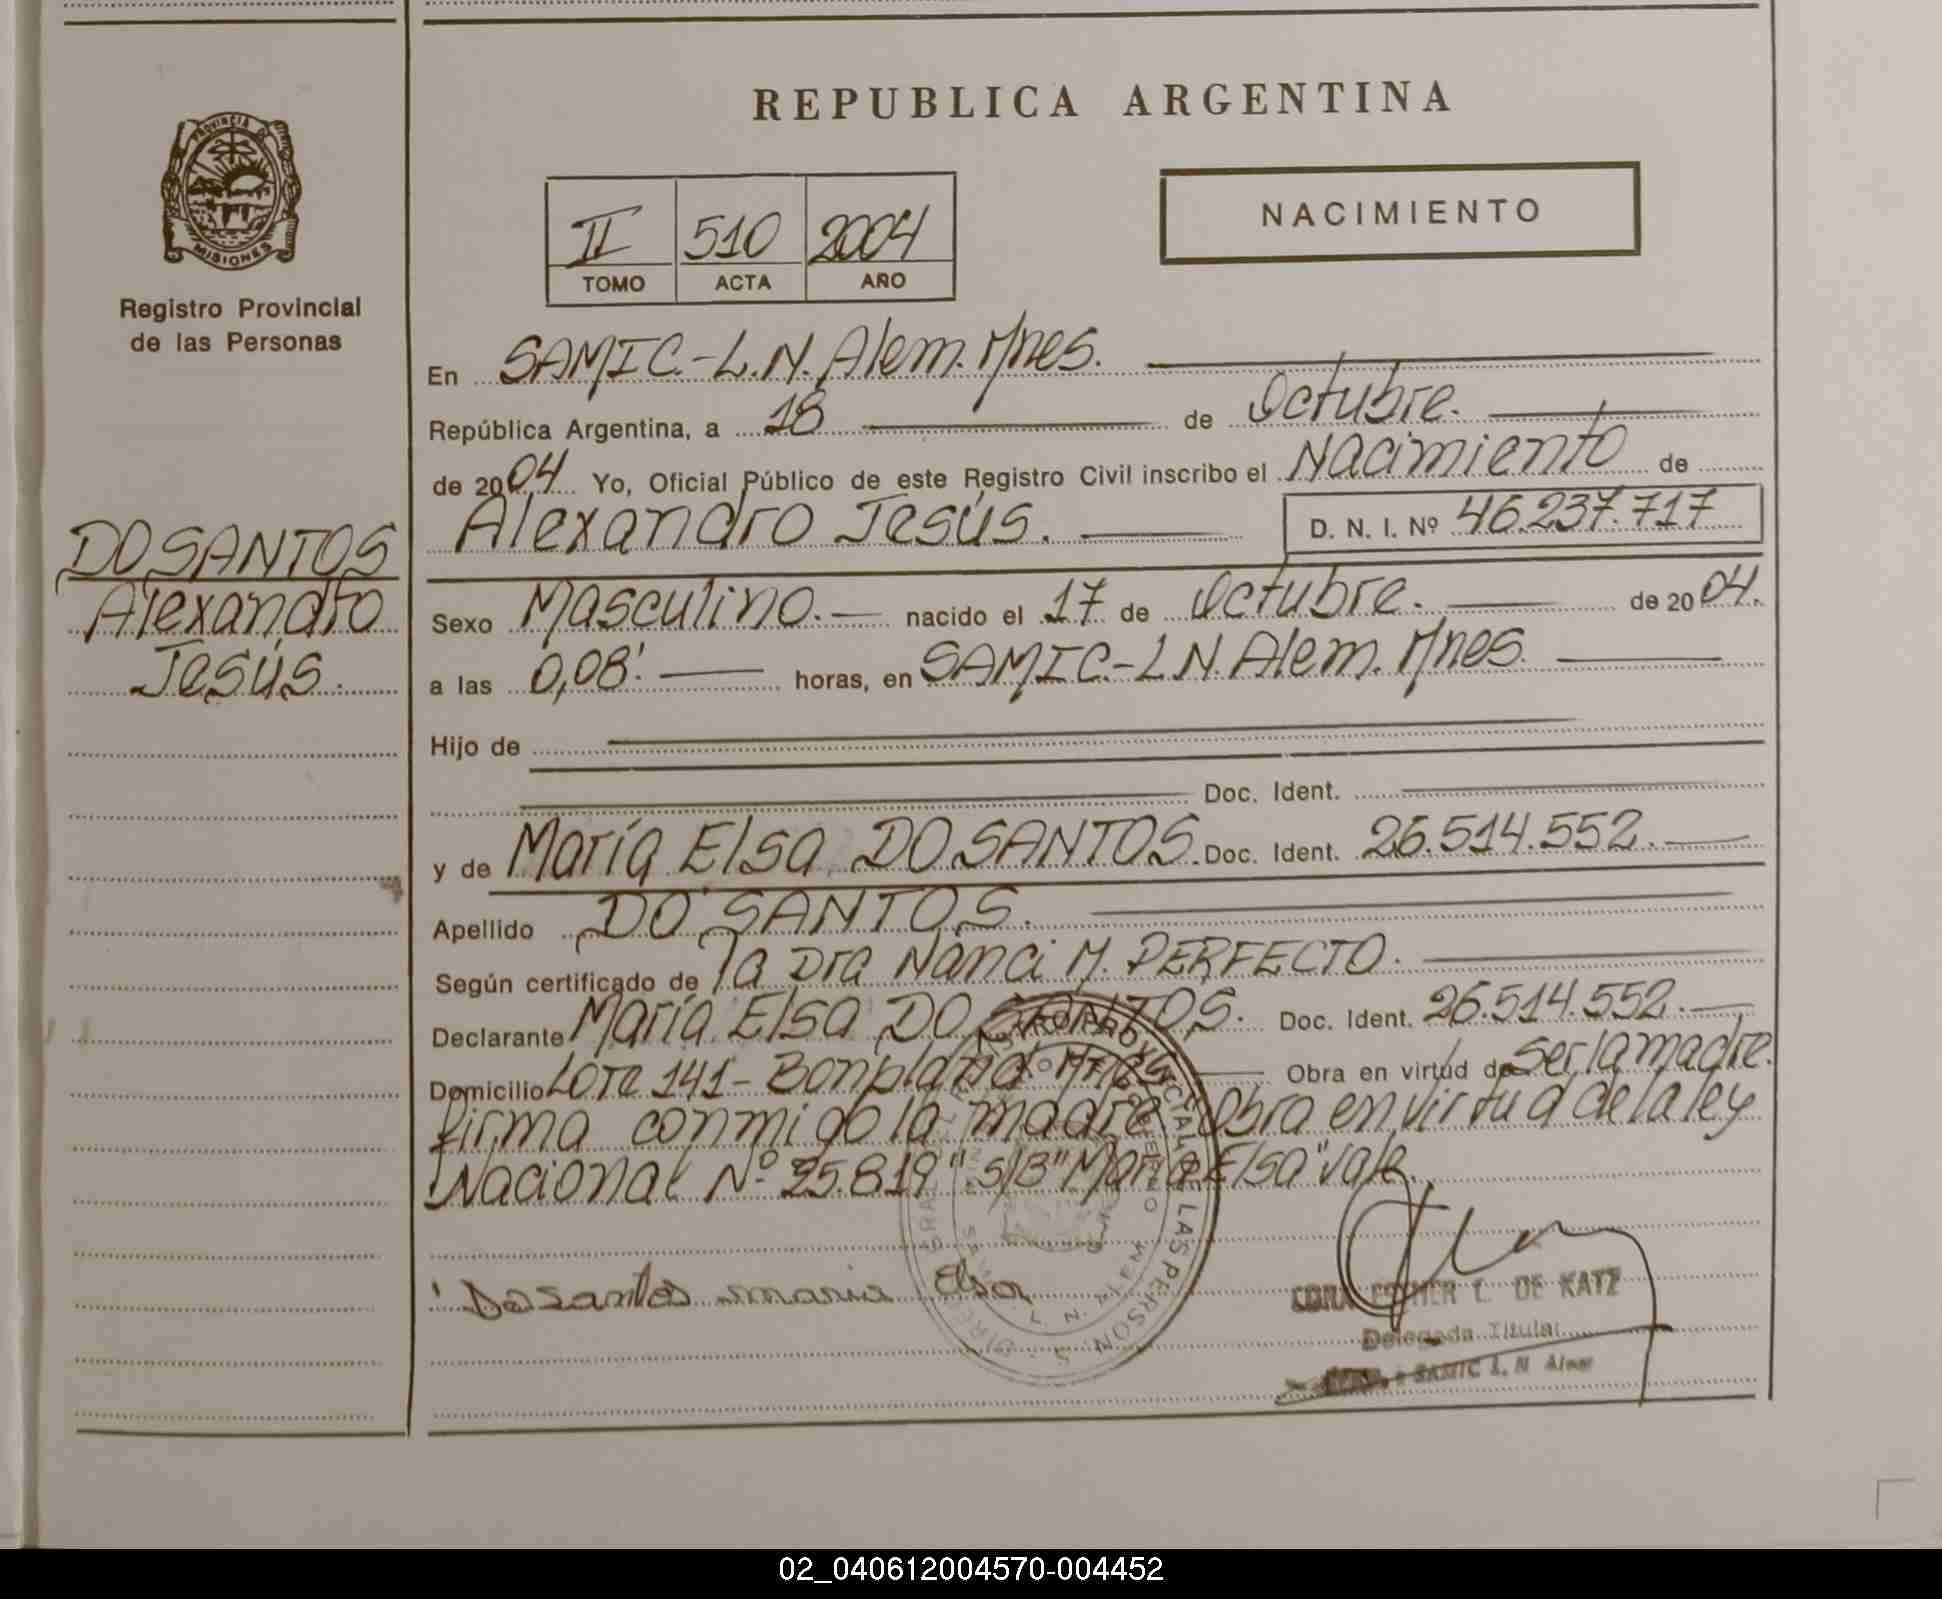 REPUBLICA ARGENTINA
PROVINCIA DE
MISIONES
Registro Provincial
de las Personas
II 510 2004
TOMO ACTA AÑO
NACIMIENTO
DO SANTOS
Alexandro
Jesús.
En SAMIC.-L.N.Alem.Mnes.
República Argentina, a 18 de Octubre.
de 2004 Yo, Oficial Público de este Registro Civil inscribo el Nacimiento de
Alexandro Jesús. D. N. I. Nº 46.237.717
Sexo Masculino. nacido el 17 de Octubre. de 2004.
a las 0,08'. horas, en SAMIC.-L.N.Alem. Mnes.
Hijo de
Doc. Ident.
y de María Elsa DO SANTOS. Doc. Ident. 26.514.552.
Apellido DO SANTOS.
Según certificado de la Dra Nanci M. PERFECTO.
Declarante María Elsa DO SANTOS. Doc. Ident. 26.514.552.
Domicilio Lote 141- Bonpland Mnes Obra en virtud de ser la madre.
firma conmigo la madre Obra en virtud de la ley
Nacional Nº 25.819" S/B" María Elsa" vale.
Dosantos maria Elsa
ESTHER L. DE KATZ
Delegada Titular
SAMIC L. N Alem
02_040612004570-004452